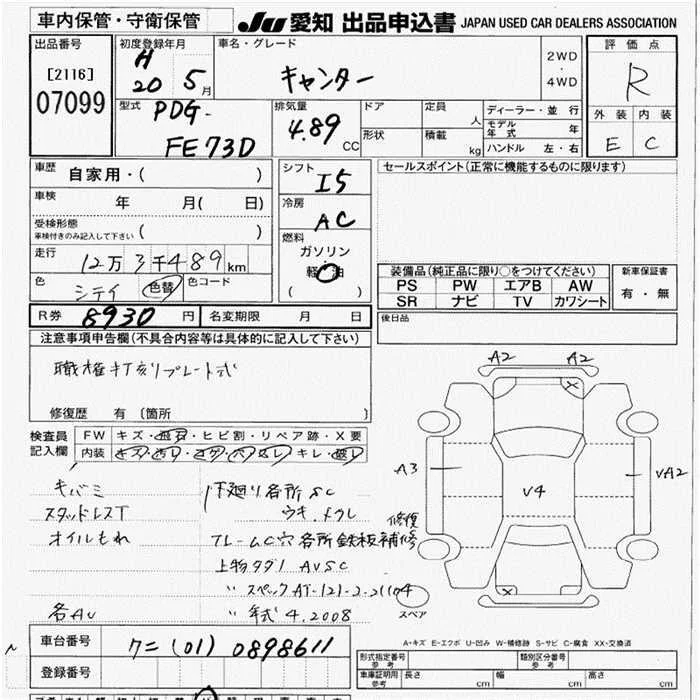 車内保管・守衛保管
JU 愛知 出品申込書 JAPAN USED CAR DEALERS ASSOCIATION
出品番号
[2116]
07099
初度登録年月
H
20 5月
車名・グレード
キャンター
2WD
・
4WD
評価点
R
外装 内装
E C
型式
PDG-
FE73D
排気量
4.89
CC
ドア
形状
定員
人
積載
kg
ディーラー・並行
モデル年式 年
ハンドル 左・右
車歴
自家用・( )
車検
年 月( 日)
受検形態
車検付きのみ記入して下さい ( )
走行
12万3千489km
色
シテイ
色替
色コード
シフト
I5
冷房
AC
燃料
ガソリン
軽油
( )
セールスポイント(正常に機能するものに限ります)
装備品(純正品に限り○をつけてください)
PS PW エアB AW
SR ナビ TV カワシート
新車保証書
有・無
R券 8930 円
名変期限 月 日
後日品
注意事項申告欄(不具合内容等は具体的に記入して下さい)
職権打刻プレート式
修復歴 有 〔箇所 〕
検査員
記入欄
FW キズ・飛石・ヒビ割・リペア跡・X要
内装
キバミ
スタッドレスT
オイルもれ
各AU
下廻り各所SC
ウキ.メクレ
フレームC穴各所鉄板補修
修復
上物タダノ AVSC
〃 スペックAT-121-2-21104
〃 年式 4.2008
A2 A2
A3
V4
VA2
スペア
A-キズ E-エクボ U-凹み W-補修跡 S-サビ C-腐食 XX-交換済
車台番号
クニ(01)0898611
登録番号
形式指定番号
参考
類別区分番号
参考
車庫証明用
参考
長さ cm
幅 cm
高さ cm